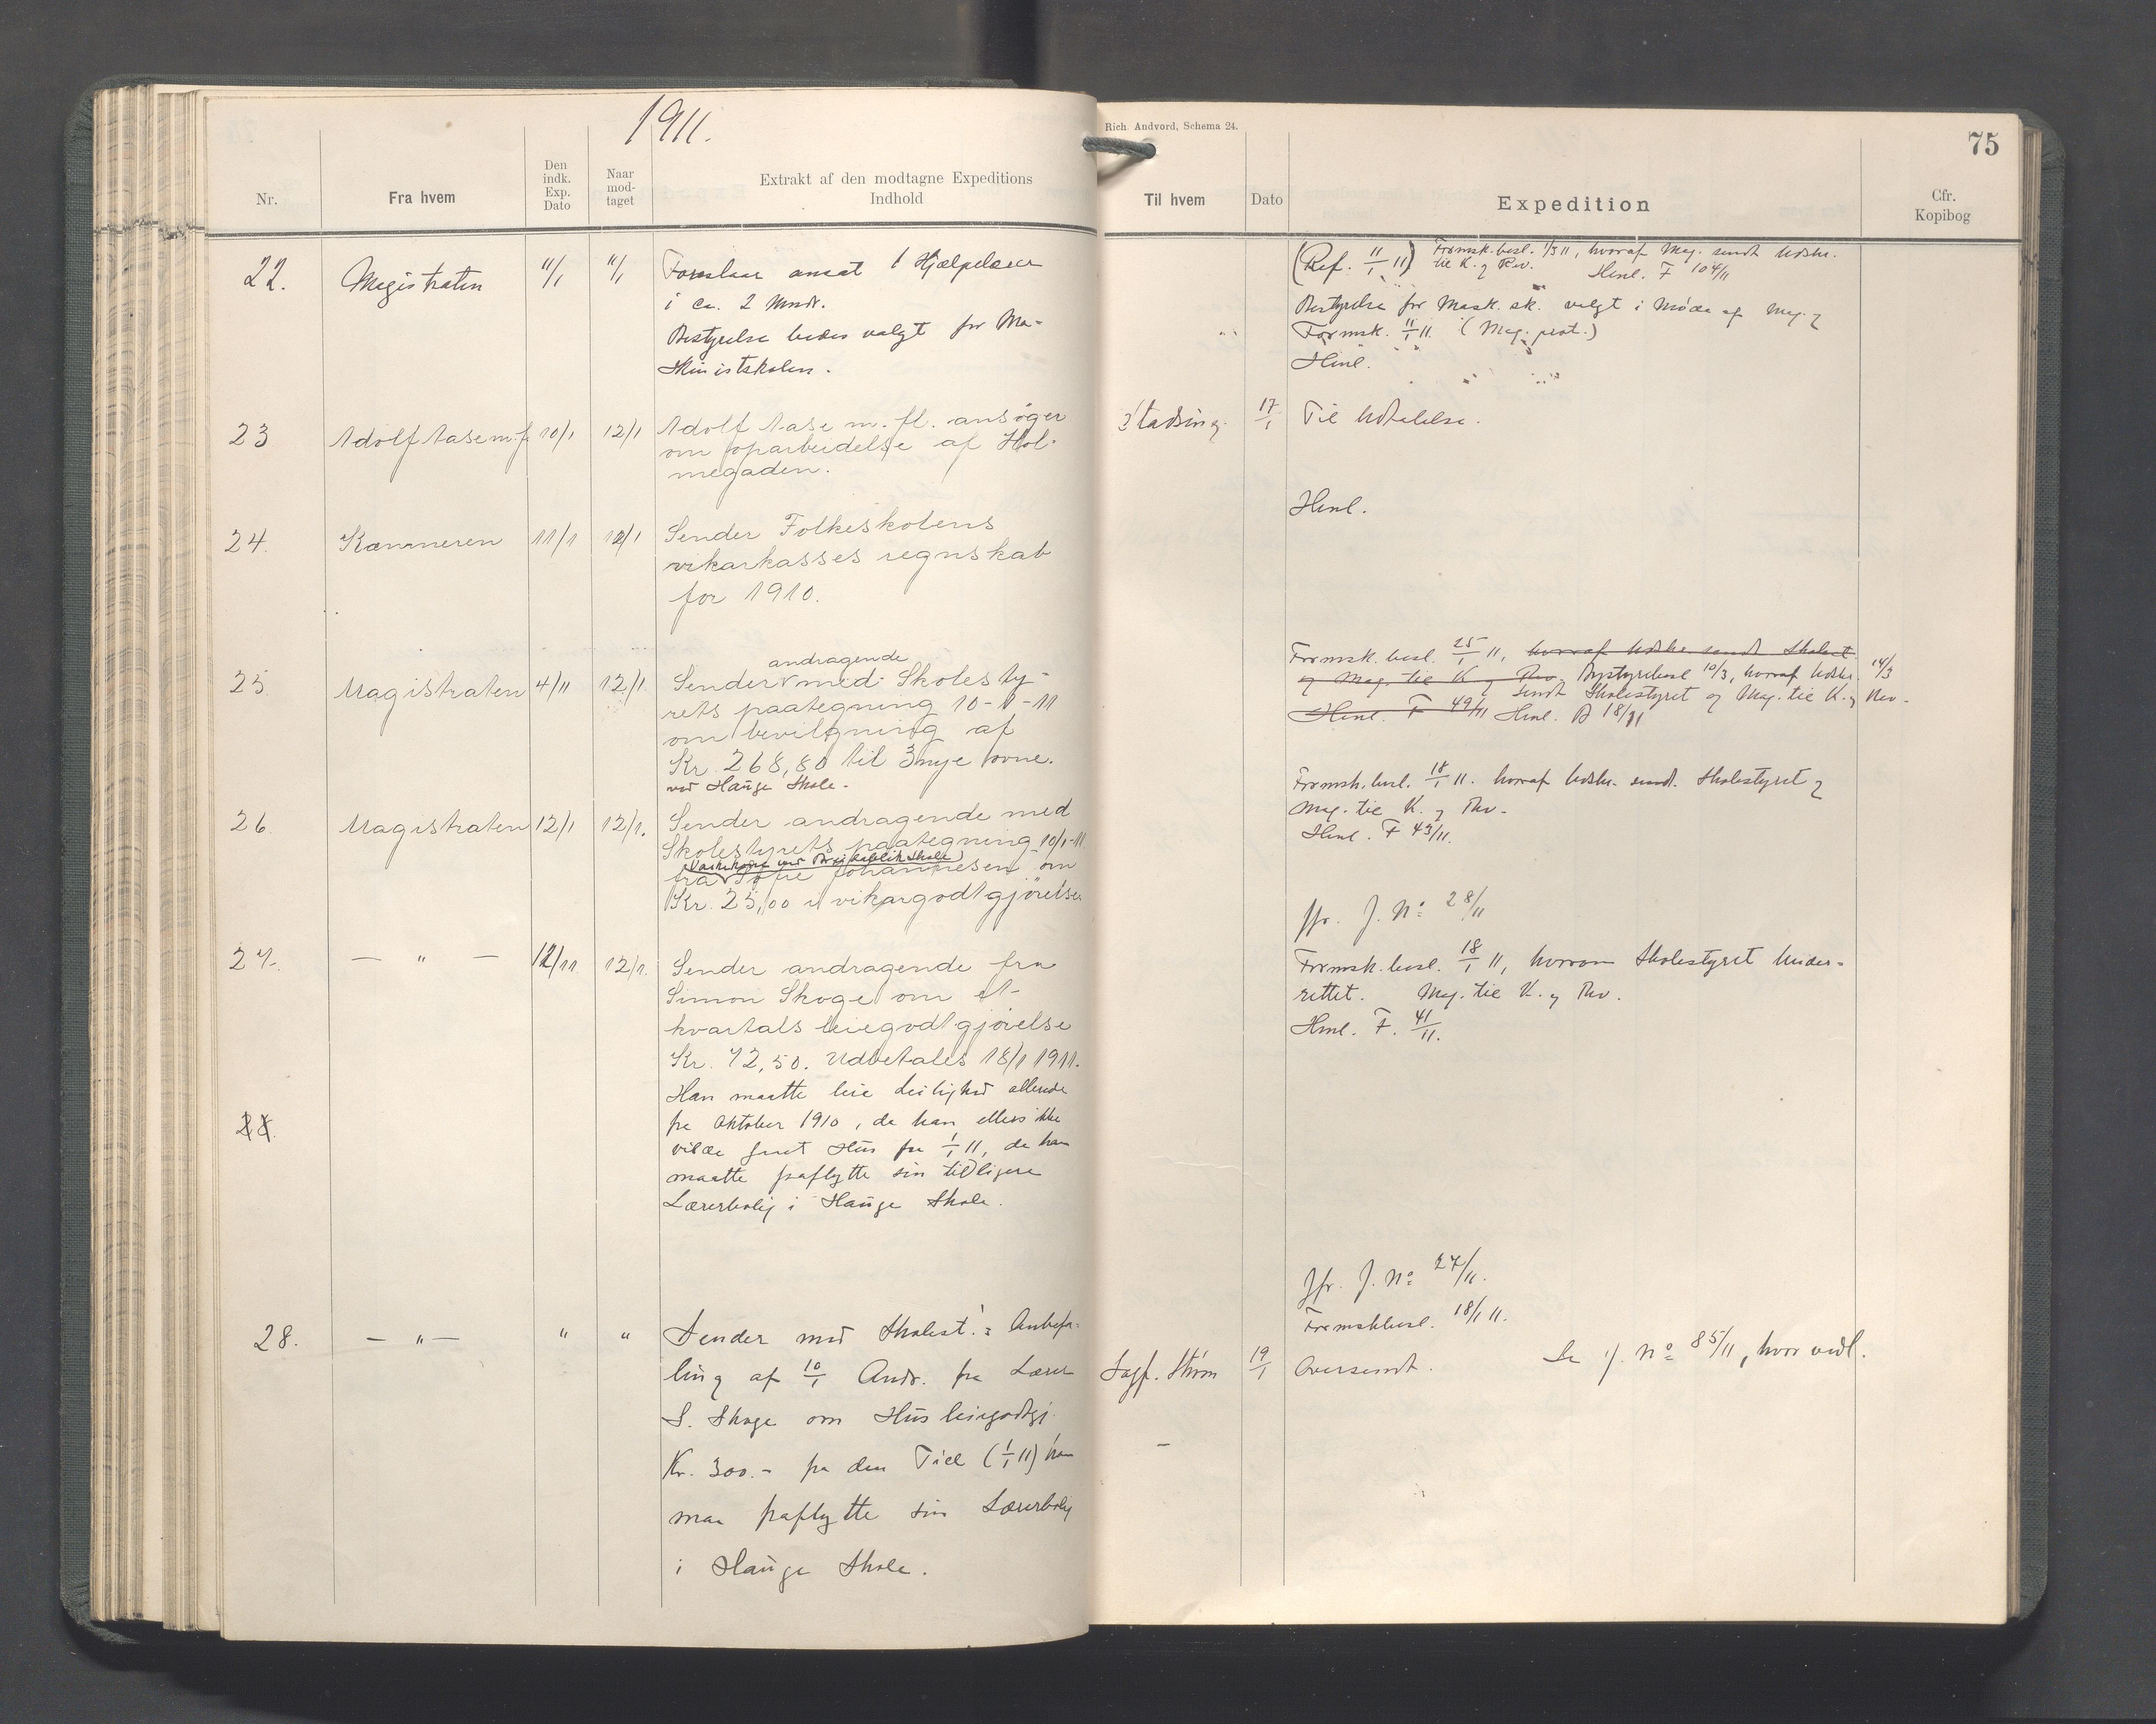 1911.
Nr.
Fra hvem
Den indk. Exp. Dato
Naar mod-taget
Extrakt af den modtagne Expeditions
Indhold
22.
Magistraten
11/1
11/1
Foreslaar ansat 1 Hjælpelærer
i ca. 2 Mndr.
Bestyrelse bedes valgt for Ma-
skinistskolen.
23
Adolf Aase m. fl
10/1
12/1
Adolf Aase m. fl. ansøger
om oparbeidelse af Hol-
megaden.
24.
Kæmneren
11/1
12/1
Sender Folkeskolens
vikarkasses regnskab
for 1910.
25.
Magistraten
4/11
12/1.
andragende
Sender med Skolesty-
rets paategning 10-1-11
om bevilgning af
Kr. 268,80 til 3 nye ovne.
ved Hauge Skole.
26.
Magistraten
12/1
12/1.
Sender andragende med
Skolestyrets paategning 10/1-11
fra Sofie Johannesen om
Kr. 25,00 i vikargodtgjørelse
27.
— " —
12/11
12/1.
Sender andragende fra
Simon Skoge om et
kvartals leiegodtgjørelse
Kr. 12,50. Udbetales 18/1 1911.
Han maatte leie Leilighed allerede
fra Oktober 1910, da han ellers ikke
vilde faaet Hus fra 1/1 11, da han
maatte fraflytte sin tidligere
Lærerbolig i Hauge Skole.
28.
28.
— " —
"
"
Sender med Skolest.s Anbefa-
ling af 10/1 Andr. fra Lærer
S. Skoge om Husleiegodtgj.
Kr. 300.- fra den Tid (1/1 11) han
maa fraflytte sin Lærerbolig
i Hauge Skole.
Rich. Andvord, Schema 24.
75
Til hvem
Dato
Expedition
Cfr.
Kopibog
(Ref. 11/1 11) Formsk.besl. 1/3 11, hvoraf Mag. sendt Udskr.
til K. og Rev. Henl. F 104/11
Bestyrelse for Mask.sk. valgt i Møde af Mag. og
Formsk. 11/1 11. (Mag. prot.)
Henl.
Stadsing.
17/1
Til Udtalelse.
Henl.
Formsk. besl. 25/1 11, hvoraf Udskr. sendt Skolest.
og Mag. til K. og Rev. Bystyrebesl. 10/3, hvoraf Udskr. 14/3
sendt Skolestyret og Mag. til K. og Rev.
Henl. F 49/11 Henl. B 18/11
Formsk. besl. 18/1 11. hvoraf Udskr. sendt Skolestyret og
Mag. til K. og Rev.
Henl. F 43/11.
Jfr. J. No 28/11
Formsk. besl. 18/1 11, hvorom Skolestyret Under-
rettet. Mag. til K. og Rev.
Henl. F. 41/11.
Jfr. J. No 27/11.
Formskbesl. 18/1 11.
Sagf. Strøm
19/1
Oversendt.
Se J. No 85/11, hvor vedl.